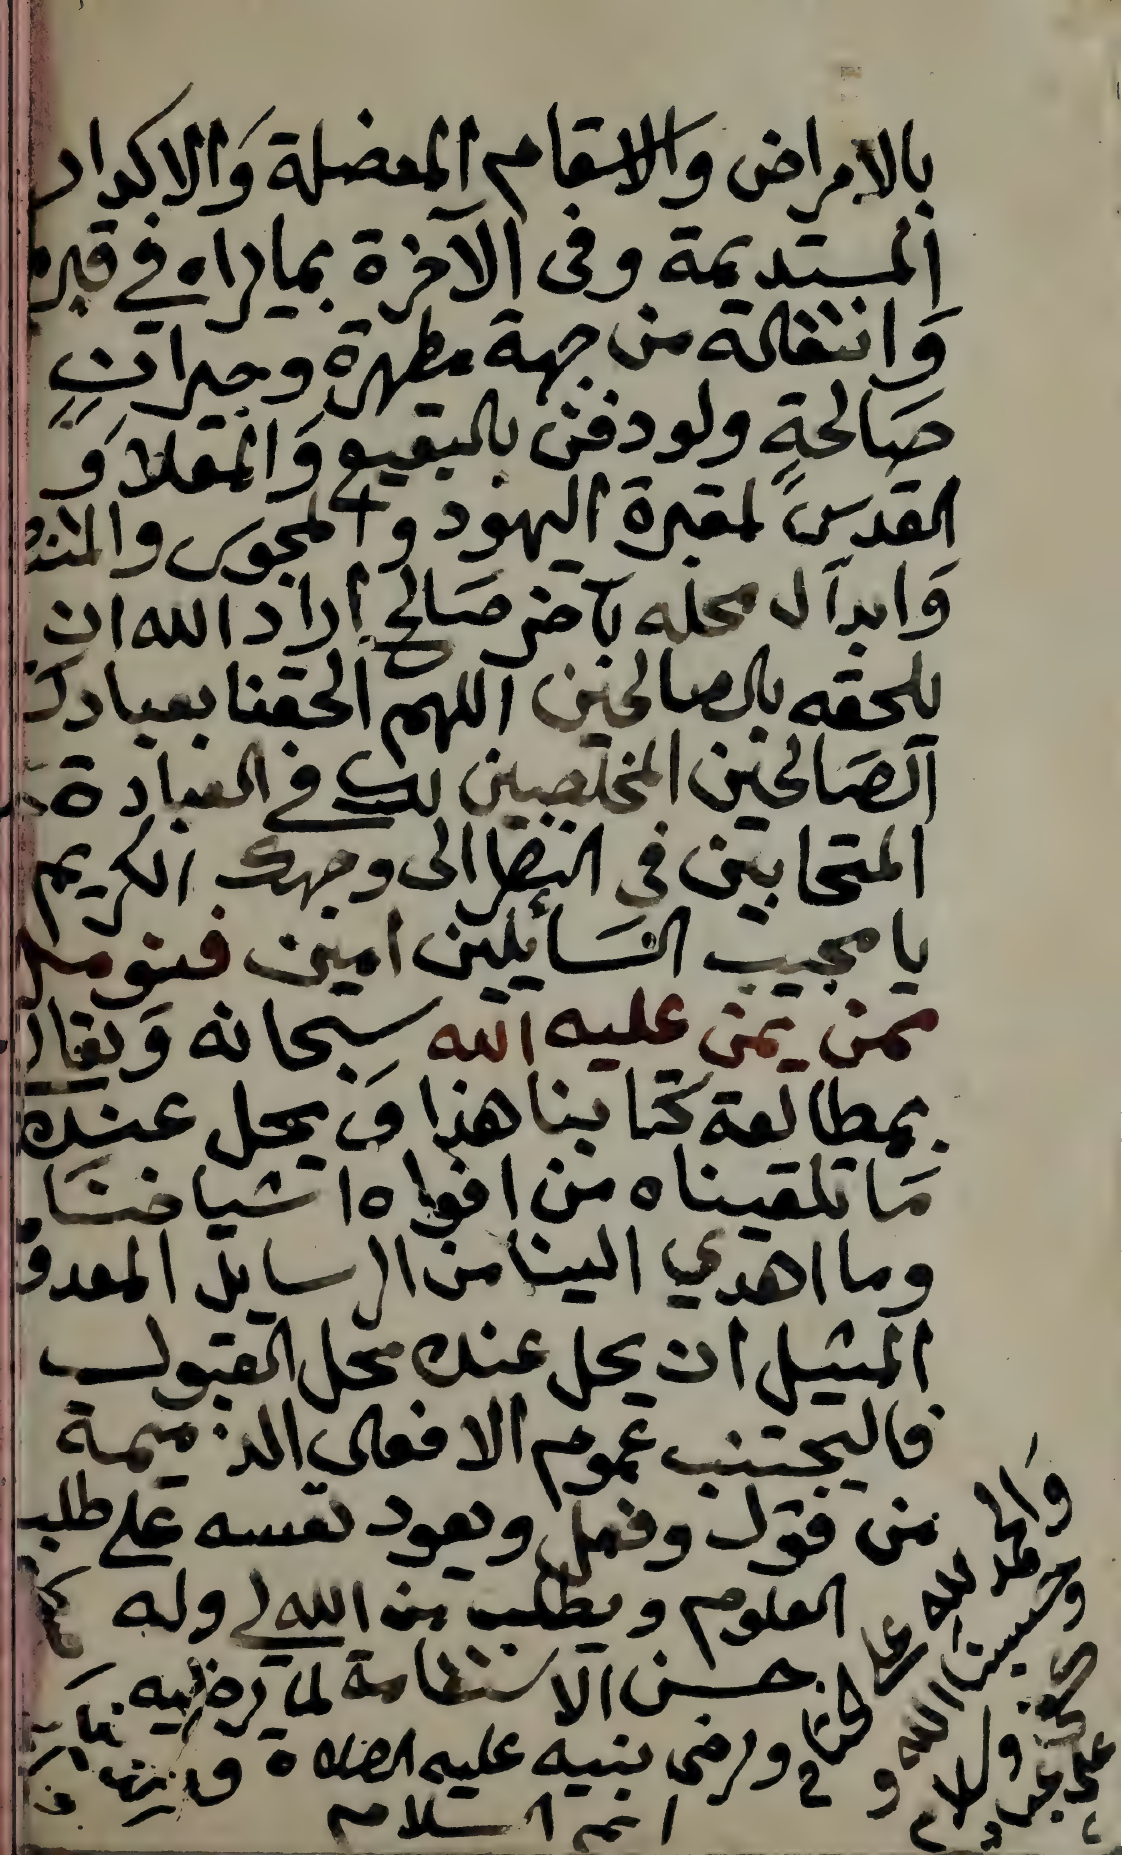 بالامراض والاسقام المعضلة وَالاكدار
المستديمة وفى الآخرة بما يراه في قبره
وَانتقاله من جهة مطهرة وجيرانٍ
صَالحةٍ ولو دفن بالبقيع وَالمعلا وَ
القدس لمقبرة اليهود والمجوس
وَابدآل محله بآخر صَالح اراد الله ان
يلحقه بالصالحين اللهم الحقنا بعبادك
الصَالحين المخلصين لك في العبادة
المتحابين فى النظر الى وجهك الكريم
يا مجيب السَائلين امين فنومل
ممن يمن عليه الله سبحانه وَتعالى
بمطالعة كتابنا هذا وَيحل عنده
مَا تلقيناه من افواه اشياخنَا
وما اهدي الينا من الرسايل المعدو
المثيل ان يحل عنده محل القبول
فاليجتنب عموم الافعال الذميمة
من قول وفعل ويعود نفسه على طلب
العلوم ويطلب من الله لي وله
حسن الاستقامة لما يرضيه
ورضى نبيه عليه الصلاة و
اتم السلام
وَالحمد لله على
وحسبنا الله و